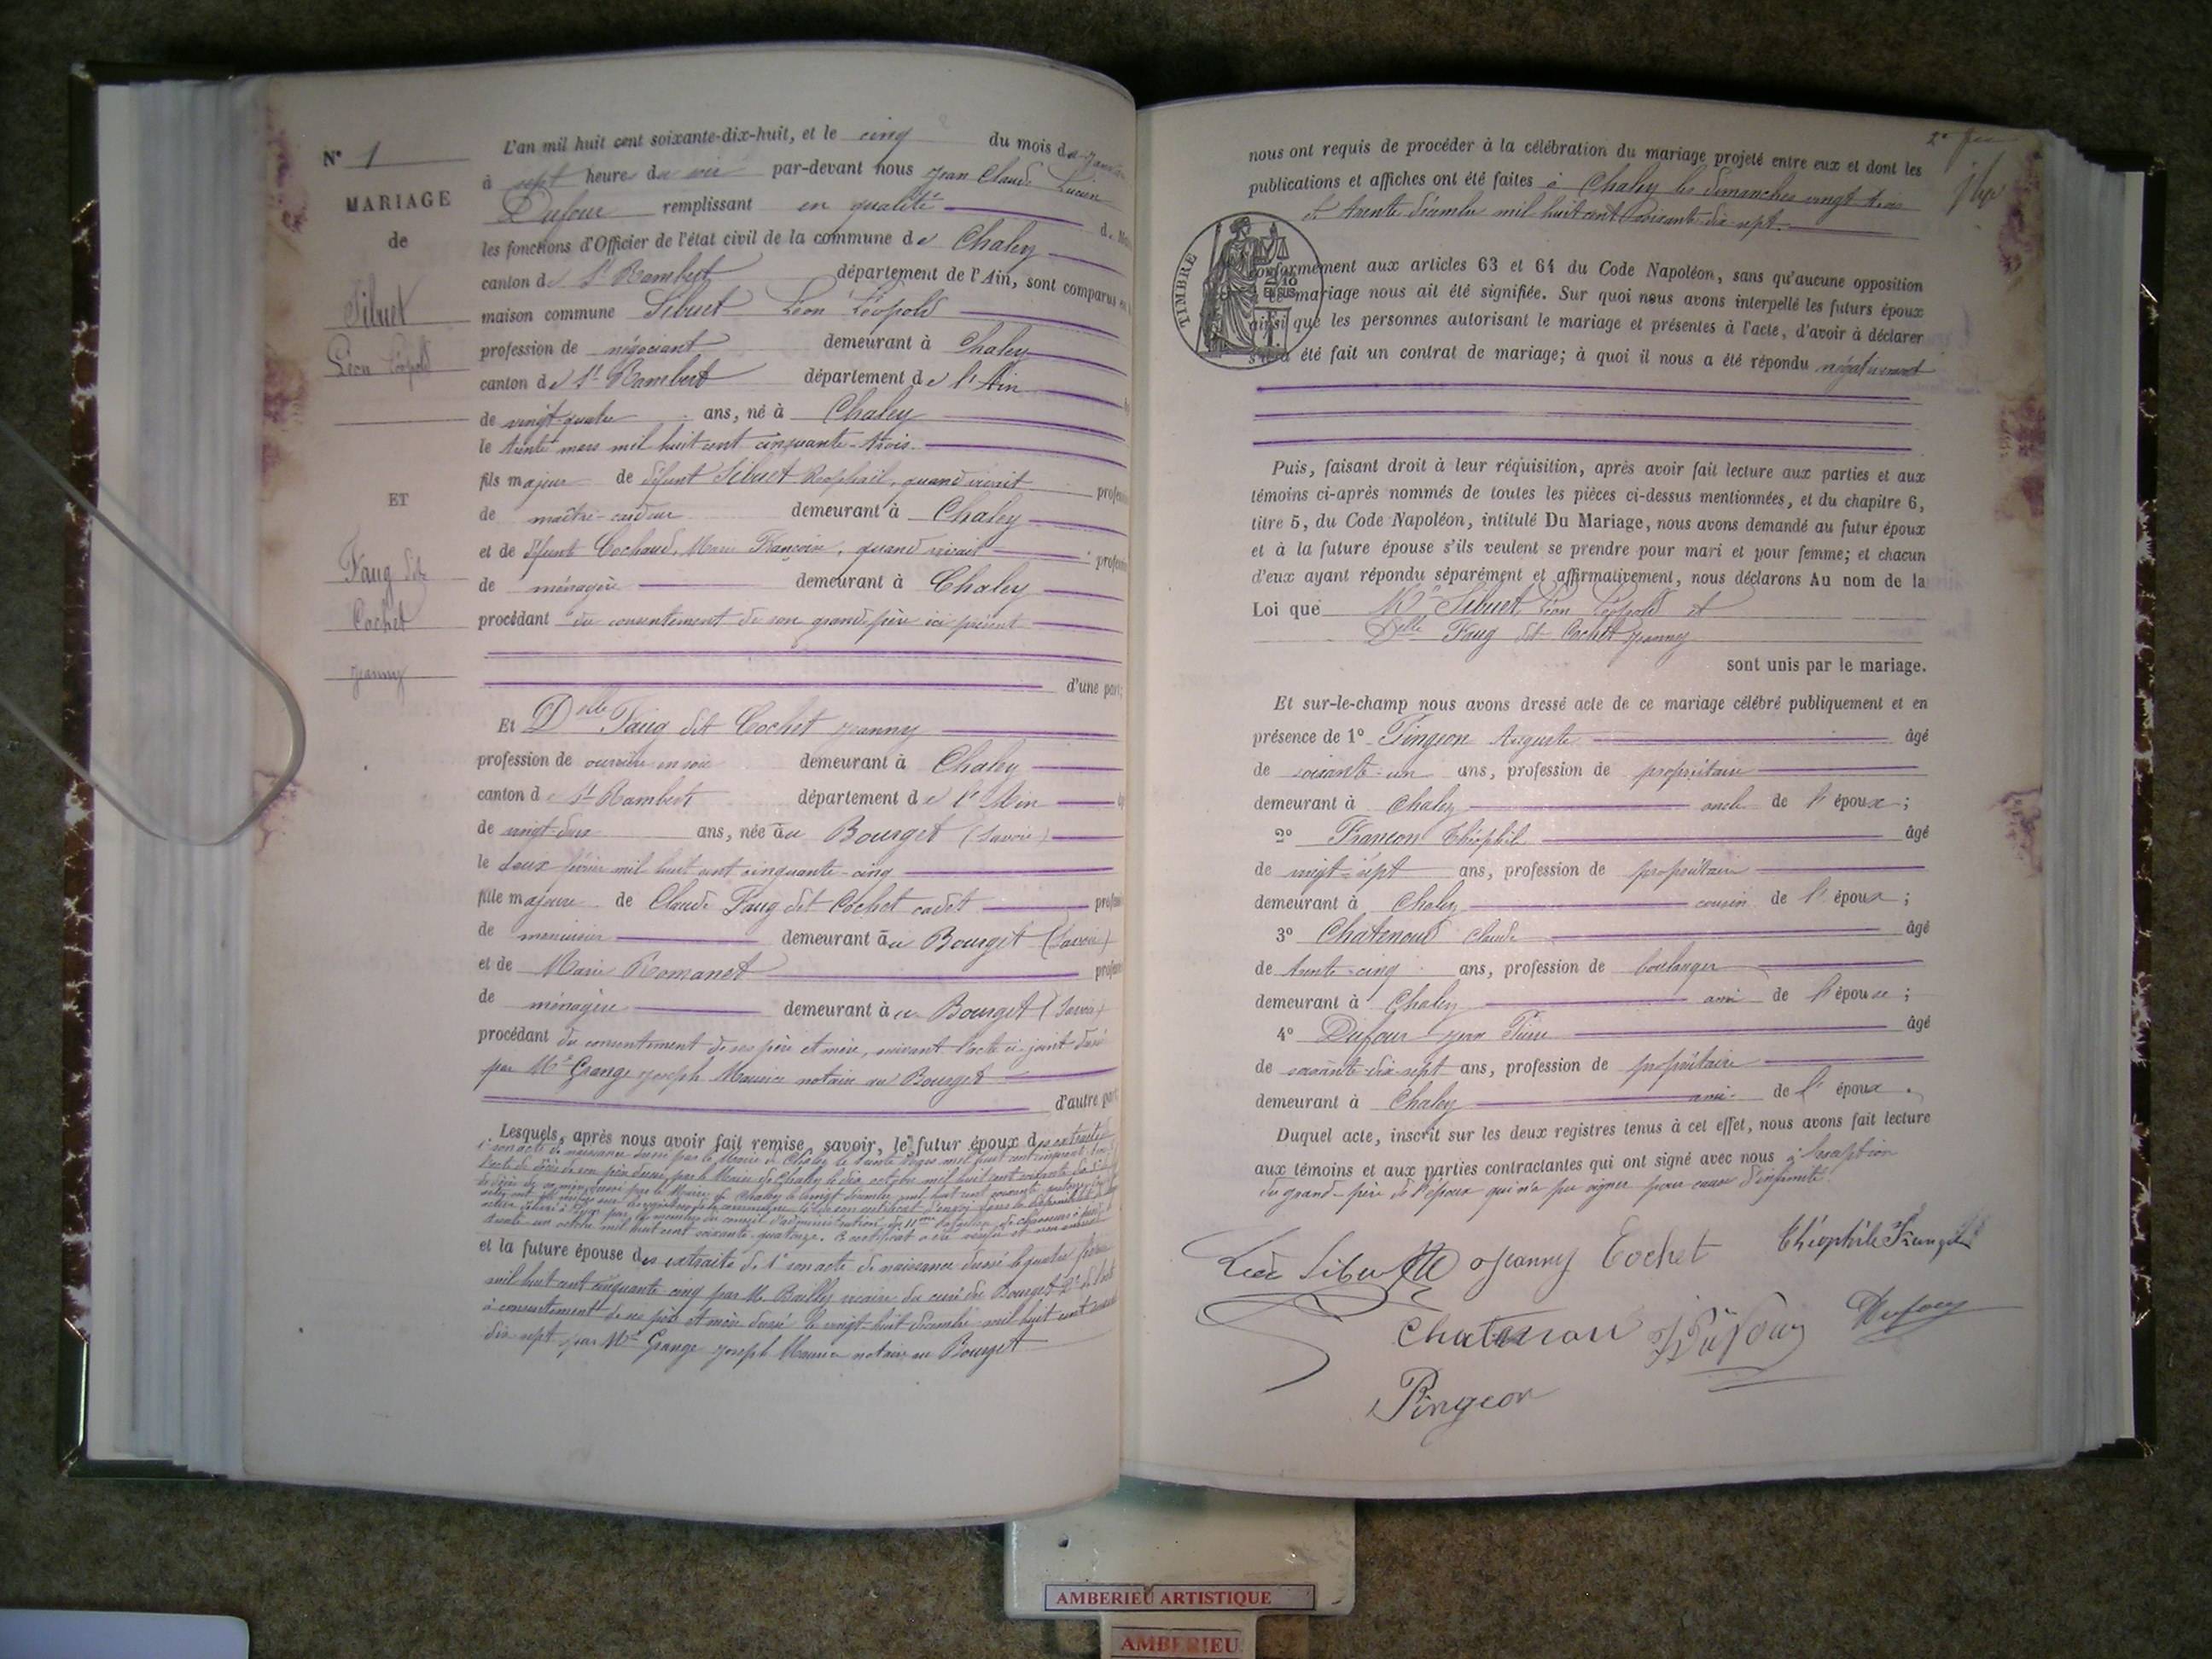 N° 1
MARIAGE
de
Sibuet
Léon Léopold
ET
Faug dit
Cochet
Jeanny
L'an mil huit cent soixante-dix-huit, et le cinq du mois de Janvier
à sept heures du soir par-devant nous Jean Claude Lucien
Dufour remplissant en qualité d
les fonctions d'Officier de l'état civil de la commune de Chaley
canton de St Rambert département de l'Ain, sont comparus
maison commune Sibuet Léon Léopold
profession de négociant demeurant à Chaley
canton de St Rambert département de l'Ain
de vingt-quatre ans, né à Chaley
le trente mars mil huit cent cinquante-trois.
fils majeur de défunt Sibuet Raphaël, quand vivait
de maître-cardeur demeurant à Chaley
et de défunte Cochaud, Marie Françoise, quand vivait
de ménagère demeurant à Chaley
procédant du consentement de son grand-père ici présent
d'une part;
Et Delle Faug dit Cochet Jeanny
profession de ouvrière en soie demeurant à Chaley
canton de St Rambert département de l'Ain
de vingt-deux ans, née au Bourget (Savoie)
le deux février mil huit cent cinquante-cinq
fille majeure de Claude Faug dit Cochet cadet
de menuisier demeurant au Bourget (Savoie)
et de Marie Romanet
de ménagère demeurant au Bourget (Savoie)
procédant du consentement de ses père et mère, suivant l'acte ci-joint dressé
par Me Grange Joseph Maurice notaire au Bourget
d'autre part
Lesquels, après nous avoir fait remise, savoir, le futur époux des extraits
1° son acte de naissance dressé par le Maire de Chaley le trente mars mil huit cent cinquante-trois
l'acte de décès de son père dressé par le Maire de Chaley le dix octobre mil huit cent
le décès de sa mère dressé par le Maire de Chaley le vingt décembre mil huit cent
par les membres du conseil d'administration du 11me bataillon de chasseurs à pied
trente-un octobre mil huit cent soixante-quatorze. Ce certificat a été
et la future épouse des extraits de 1° son acte de naissance dressé le quatre février
mil huit cent cinquante-cinq par M. Bailly vicaire du curé du Bourget 2° de l'acte
à consentement de ses père et mère dressé le vingt-huit décembre mil huit cent soixante
dix-sept par Me Grange Joseph Maurice notaire au Bourget
nous ont requis de procéder à la célébration du mariage projeté entre eux et dont les
publications et affiches ont été faites à Chaley les dimanches vingt trois
et trente décembre mil huit cent soixante-dix-sept.
TIMBRE
2/10
EN SUS
conformément aux articles 63 et 64 du Code Napoléon, sans qu'aucune opposition
mariage nous ait été signifiée. Sur quoi nous avons interpellé les futurs époux
ainsi que les personnes autorisant le mariage et présentes à l'acte, d'avoir à déclarer
s'il a été fait un contrat de mariage; à quoi il nous a été répondu négativement
Puis, faisant droit à leur réquisition, après avoir fait lecture aux parties et aux
témoins ci-après nommés de toutes les pièces ci-dessus mentionnées, et du chapitre 6,
titre 5, du Code Napoléon, intitulé Du Mariage, nous avons demandé au futur époux
et à la future épouse s'ils veulent se prendre pour mari et pour femme; et chacun
d'eux ayant répondu séparément et affirmativement, nous déclarons Au nom de la
Loi que Mr Sibuet Léon Léopold et
Delle Faug dit Cochet Jeanny
sont unis par le mariage.
Et sur-le-champ nous avons dressé acte de ce mariage célébré publiquement et en
présence de 1° Pingeon Auguste âgé
de soixante-un ans, profession de propriétaire
demeurant à Chaley oncle de l'époux;
2° Françon Théophile âgé
de vingt-sept ans, profession de propriétaire
demeurant à Chaley cousin de l'époux;
3° Chatenoud Claude âgé
de trente-cinq ans, profession de boulanger
demeurant à Chaley ami de l'épouse;
4° Dufour Jean Pierre âgé
de soixante-dix-sept ans, profession de propriétaire
demeurant à Chaley ami de l'époux.
Duquel acte, inscrit sur les deux registres tenus à cet effet, nous avons fait lecture
aux témoins et aux parties contractantes qui ont signé avec nous à l'exception
du grand-père de l'époux qui n'a pu signer pour cause d'infirmité.
Léon Sibuet Jeanny Cochet Théophile Françon
Chatenou Dufour Dufour
Pingeon
AMBERIEU ARTISTIQUE
AMBERIEU